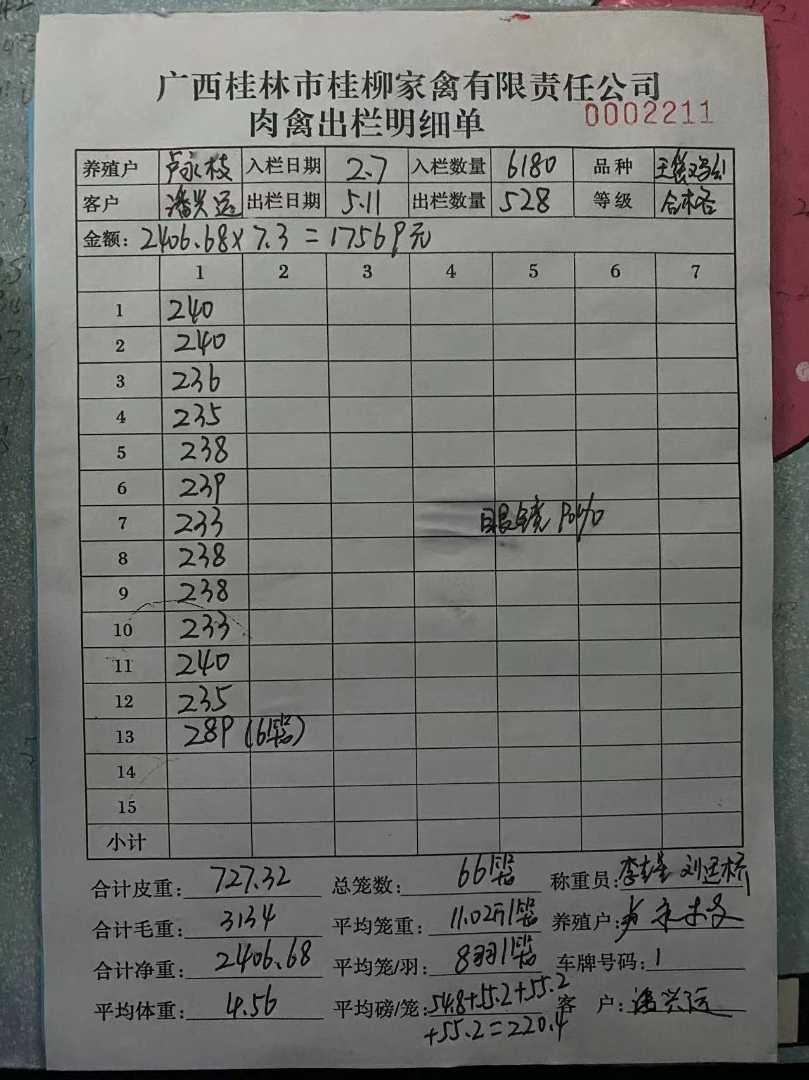 广西桂林市桂柳家禽有限责任公司
肉禽出栏明细单 0002211
养殖户 卢永枝 入栏日期 2.7 入栏数量 6180 品种
客户 潘兴运 出栏日期 5.11 出栏数量 528 等级 合格
金额: 2406.68×7.3=17569元
1 2 3 4 5 6 7
1 240
2 240
3 236
4 235
5 238
6 239
7 233 眼镜
8 238
9 238
10 233
11 240
12 235
13 289 (6笼)
14
15
小计
合计皮重: 727.32 总笼数: 66笼 称重员:
合计毛重: 3134 平均笼重: 11.02斤/笼 养殖户:
合计净重: 2406.68 平均笼/羽: 8羽/笼 车牌号码:
平均体重: 4.56 平均磅/笼: 54.8+55.2+55.2 客户: 潘兴运
+55.2=220.4